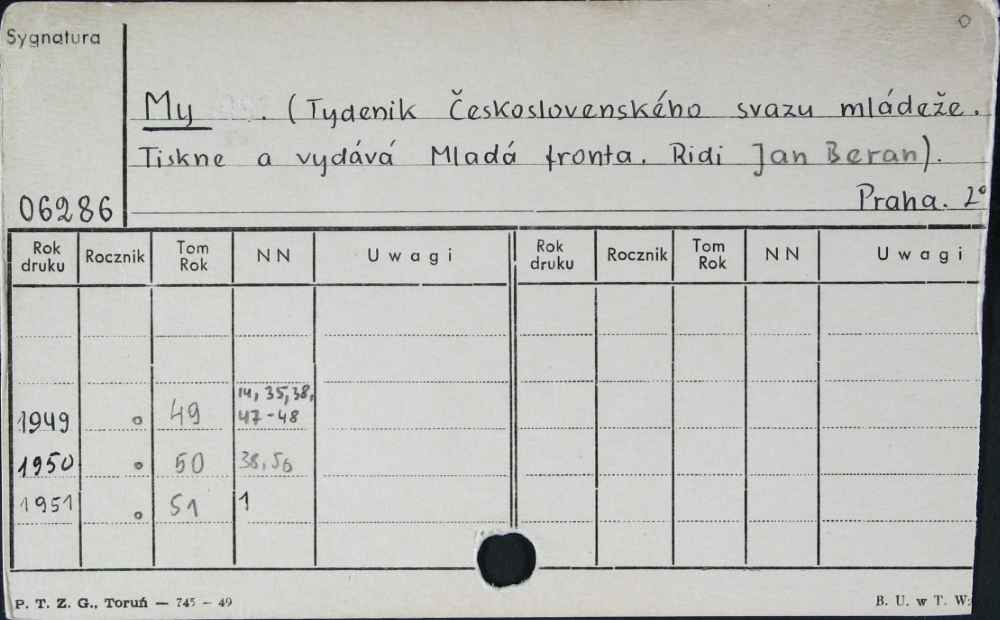 Sygnatura
My . (Tydenik Československého svazu mládeže.
Tiskne a vydává Mladá fronta. Ridi Jan Beran).
06286 Praha. 2°
Rok druku Rocznik Tom Rok NN Uwagi Rok druku Rocznik Tom Rok NN Uwagi
14, 35, 38,
1949 49 47-48
1950 50 38, 56
1951 51 1
P. T. Z. G., Toruń — 745 - 49 B. U. w T. W: